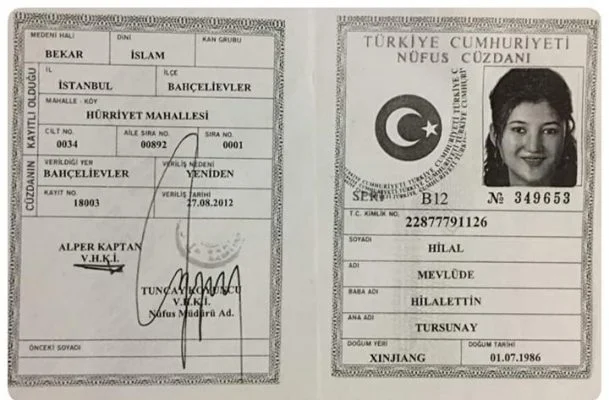 MEDENİ HALİ
DİNİ
KAN GRUBU
BEKAR
İSLAM
İL
İLÇE
İSTANBUL
BAHÇELİEVLER
MAHALLE - KÖY
HÜRRİYET MAHALLESİ
CİLT NO.
AİLE SIRA NO.
SIRA NO.
0034
00892
0001
KAYITLI OLDUĞU
VERİLDİĞİ YER
VERİLİŞ NEDENİ
BAHÇELİEVLER
YENİDEN
KAYIT NO.
VERİLİŞ TARİHİ
18003
27.08.2012
CÜZDANIN
ALPER KAPTAN
V.H.K.İ.
TUNCAY
V.H.K.İ.
Nüfus Müdürü Ad.
ÖNCEKİ SOYADI
TÜRKİYE CUMHURİYETİ
NÜFUS CÜZDANI
TÜRKİYE CUMHURİYETİ TÜRKİYE CUMHURİYETİ
SERİ B12 № 349653
T.C. KİMLİK NO.
22877791126
SOYADI
HİLAL
ADI
MEVLÜDE
BABA ADI
HİLALETTİN
ANA ADI
TURSUNAY
DOĞUM YERİ
DOĞUM TARİHİ
XINJIANG
01.07.1986